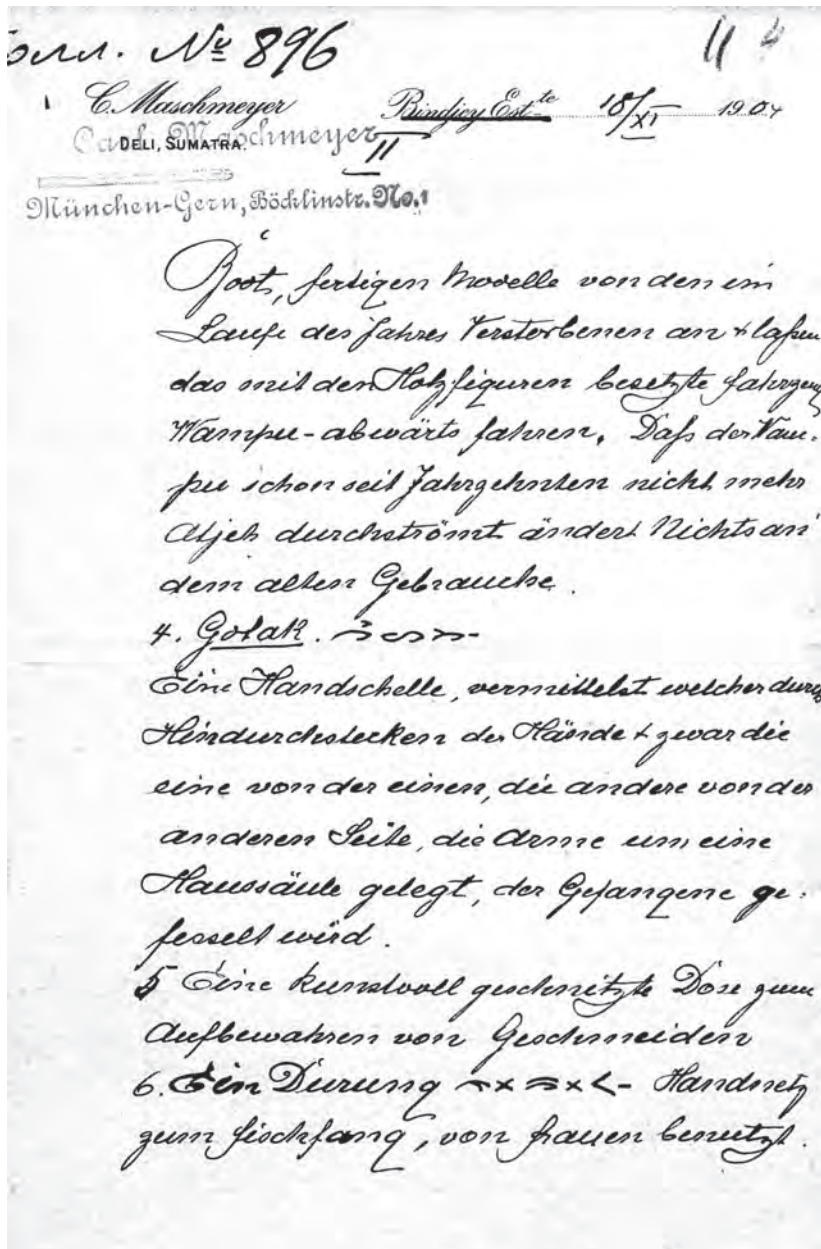 Колл. № 896
11 4
C. Maschmeyer
Bindjey Est.te 18/XI 1904
Carl Maschmeyer
DELI, SUMATRA.
II
München-Gern, Böcklinstr. No. 1
Boot, fertigen Modelle von den im
Laufe des Jahres Verstorbenen an & laßen
das mit den Holzfiguren besetzte Fahrzeug
Wampu-abwärts fahren. Daß der Wam-
pu schon seit Jahrzehnten nicht mehr
Atjeh durchströmt ändert Nichts an
dem alten Gebrauche.
4. Golak.
Eine Handschelle, vermittelst welcher durch
Hindurchstecken der Hände & zwar die
eine von der einen, die andere von der
anderen Seite, die Arme um eine
Haussäule gelegt, der Gefangene ge-
fesselt wird.
5 Eine kunstvoll geschnitzte Dose zum
Aufbewahren von Geschmeiden
6. Ein Durung Handnetz
zum Fischfang, von Frauen benutzt.